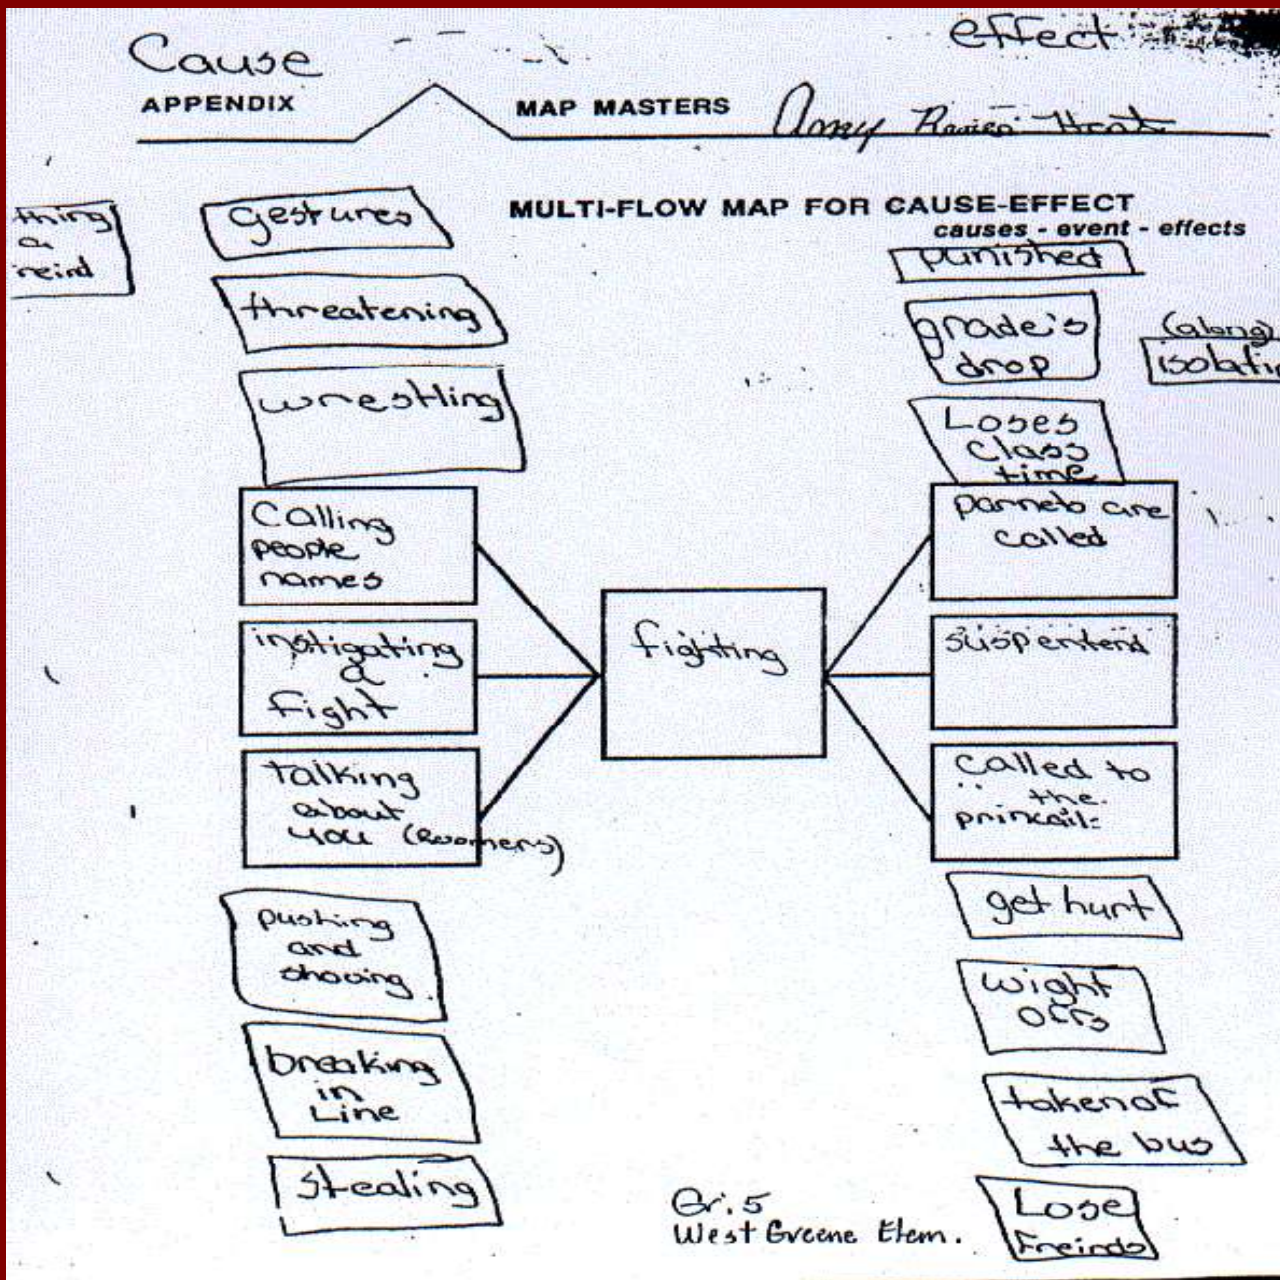 Cause
effect
APPENDIX
MAP MASTERS
Amy
MULTI-FLOW MAP FOR CAUSE-EFFECT
causes - event - effects
thing
a
reind
gestures
threatening
wrestling
Calling
people
names
instigating
a
fight
talking
about
you (Roomers)
pushing
and
shoving
breaking
in
Line
stealing
fighting
punished
grade's
drop
(along)
isolatin
Loses
Class
time
parnets are
called
suspentend
Called to
the
prinkail
get hurt
wight
offs
taken of
the bus
Lose
Freinds
Gr. 5
West Greene Elem.